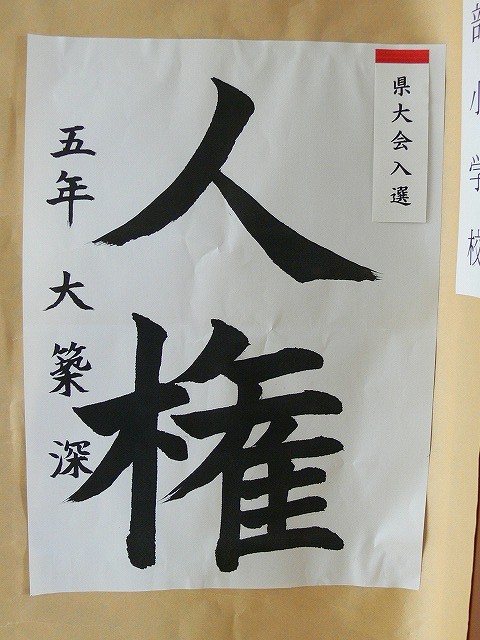 部小学校
県大会入選
人権
五年 大築深